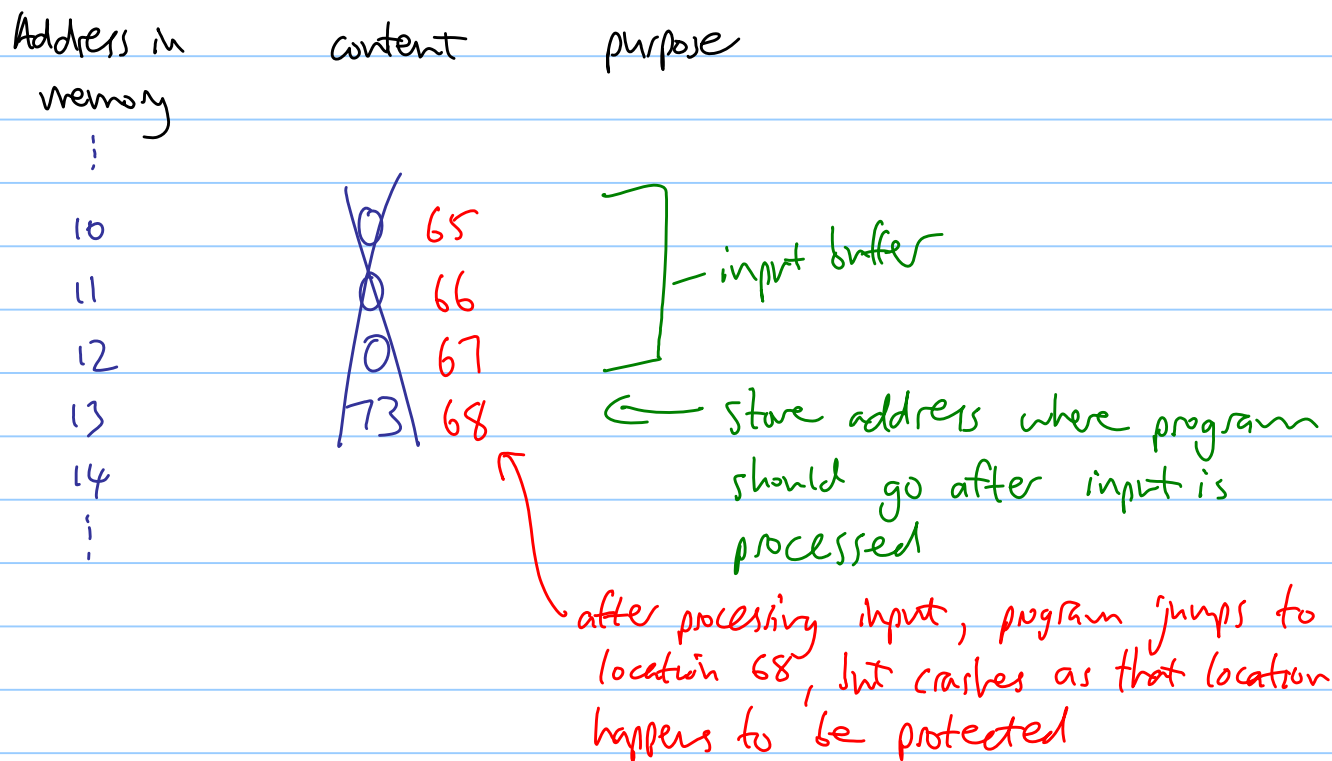 Address in content purpose
memory
⋮
10 0 65
11 0 66 input buffer
12 0 67
13 73 68 ← store address where program
14 should go after input is
⋮ processed
after processing input, program jumps to
location 68, but crashes as that location
happens to be protected